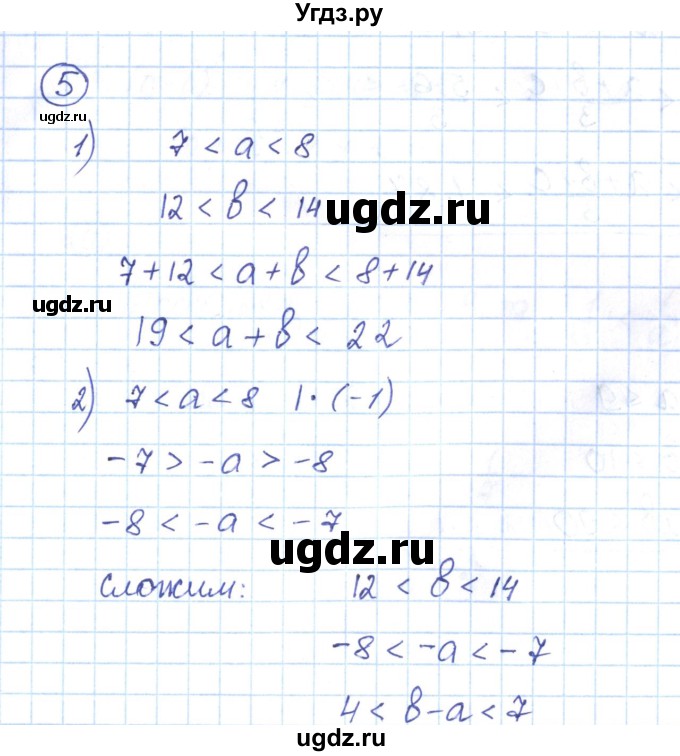 Угдз.ру
5
ugdz.ru
1) 7 < a < 8
12 < в < 14
ugdz.ru
7 + 12 < a + в < 8 + 14
ugdz.ru
19 < a + в < 22
2) 7 < a < 8 | · (-1)
-7 > -a > -8
-8 < -a < -7
ugdz.ru
сложим: 12 < в < 14
-8 < -a < -7
4 < в - a < 7
ugdz.ru